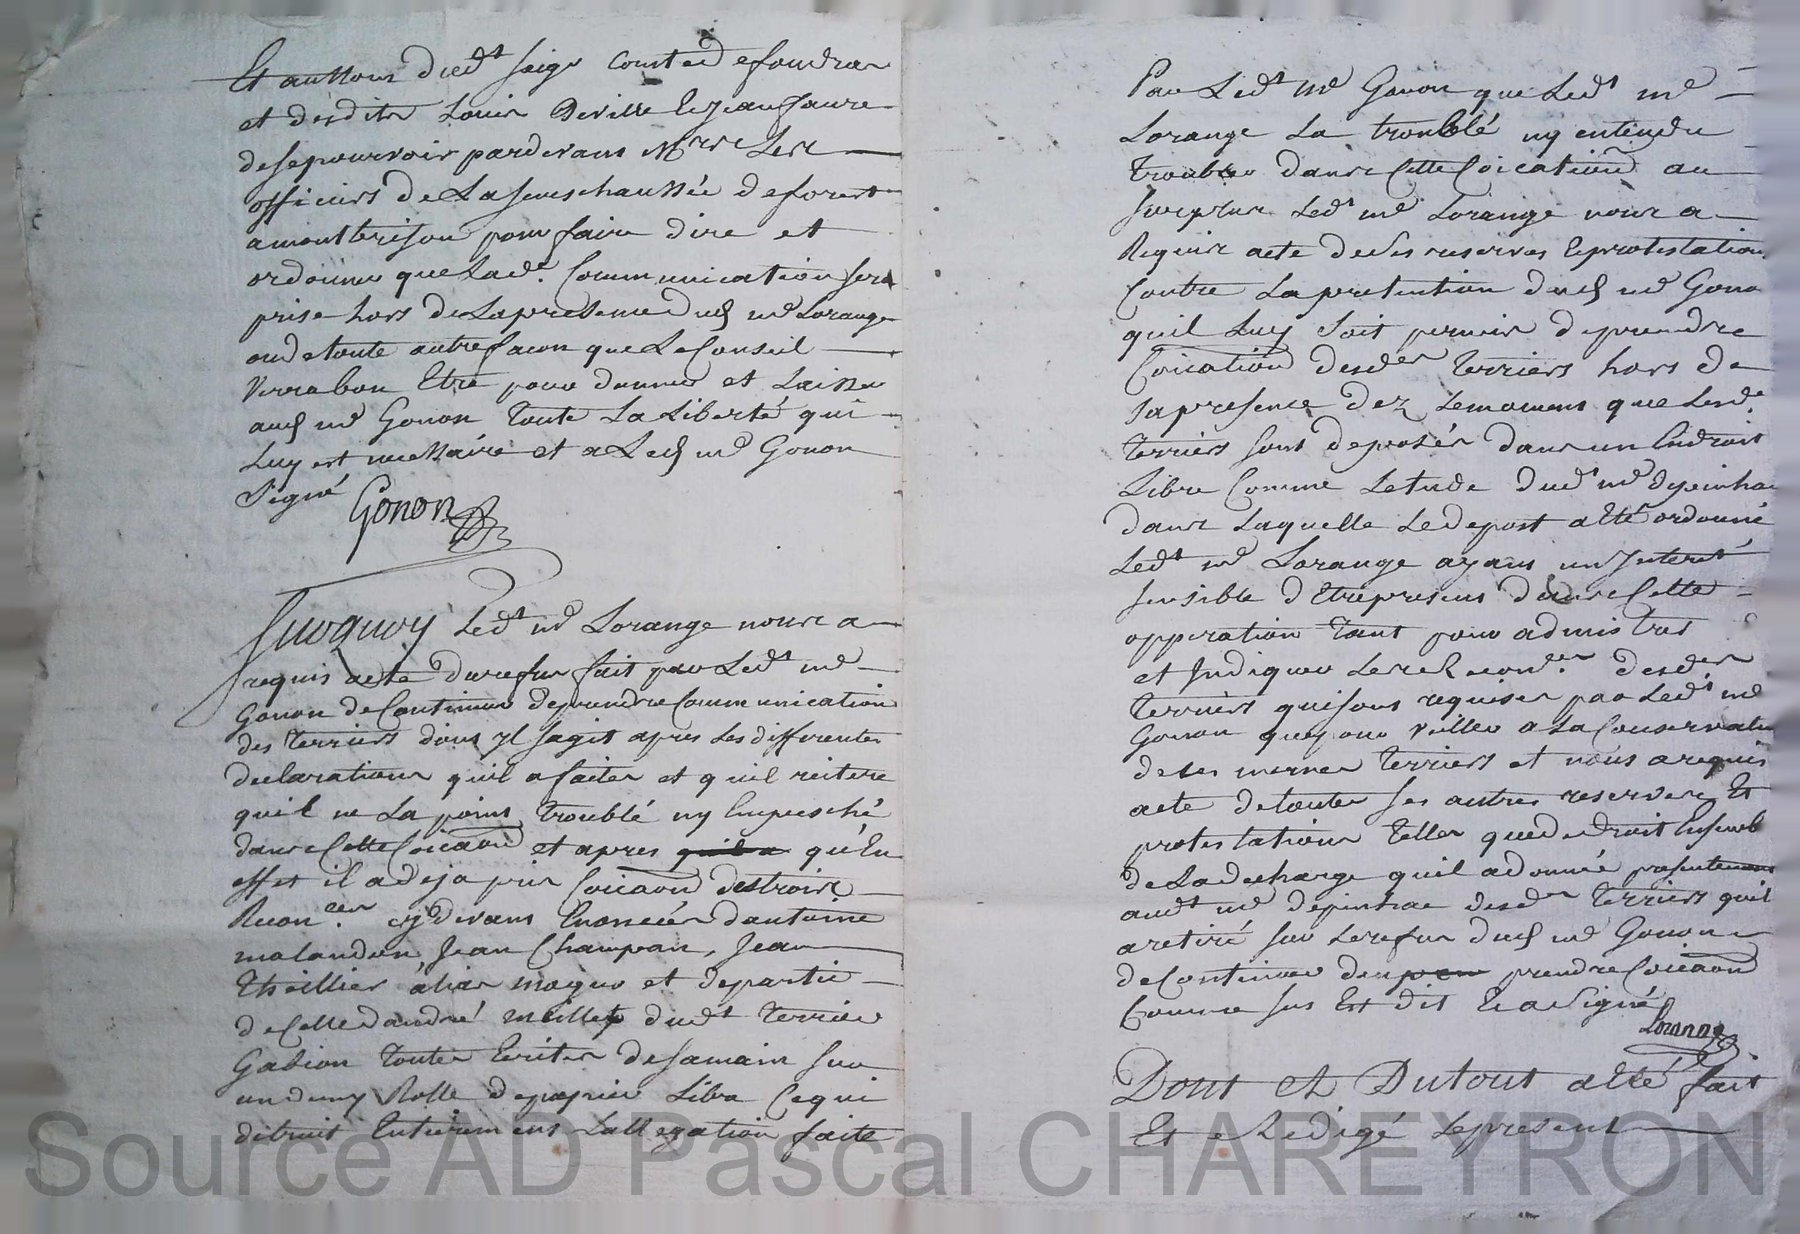 Et auttour dudt seigr Comte de foudra
et desdits Louis Deville Et Jean faure
de se pourvoir pardevant Mrs Les
officiers de La senechaussée de forest
a montbrison pour faire dire et
ordonner que Lade Communication sera
prise hors de La presence dud me Lorange
ou de toute autre facon que Le Conseil
verra bon Etre pour donner et Laisser
aud me Gonon toute La Liberté qui
Luy est necessaire et a Led me Gonon
Signé
Gonon
Surquoy Ledt me Lorange nous a
requis acte du refus fait par Ledt me
Gonon de Continuer de prendre Communication
des terriers dont yl sagit apres Les differentes
declarations quil a faites et quil reitere
quil ne La point troublé ny Empesché
dans Cette Coicaon et apres qu'En
effet il a deja pris Coicaon des trois
Recon.ces cy devant Enoncées dantoine
malandon, Jean Champran, Jean
theillier alias mogur et de partie
de Celle dandré meillet dudt terrier
Gabion toutes Ecrites de sa main sur
un demy Rolle de papier Libre Ce qui
détruit Entierement Lallegation faite
Par Ledt Me Gonon que Ledt me
Lorange La troublé ny entendu
troubler dans Cette Coication au
surplus Ledt me Lorange nous a
Requis acte de Ses reserves Et protestations
Contre La pretention dud me Gono
quil Luy soit permis de prendre
Coication desdts terriers hors de
sa presence dez Le moment que Lesd.
terriers sont deposés dans un Endroit
Libre Comme Letude dudt me depeinha
dans Laquelle Le depost a Eté ordonné
Ledt me Lorange ayant un Interet
sensible dEtre present dans Cette
opperation tant pour
et Indiquer Les reconces desdts
terriers qui sont requises par Ledt me
Gonon que pour veiller a La Conservation
de Ses memes terriers et nous a requis
acte de toutes ses autres reserves Et
protestations telles que de droit Ensemb
de La decharge quil a donnée presentement
audt me depeinhac desdts terriers quil
a retiré sur Le refus dud me Gonon
de Continuer den prendre Coicaon
Comme sus Est dit Et a Signé
Lorange
Dont et Du tout a Eté fait
Et Redigé Le present
Source AD Pascal CHAREYRON